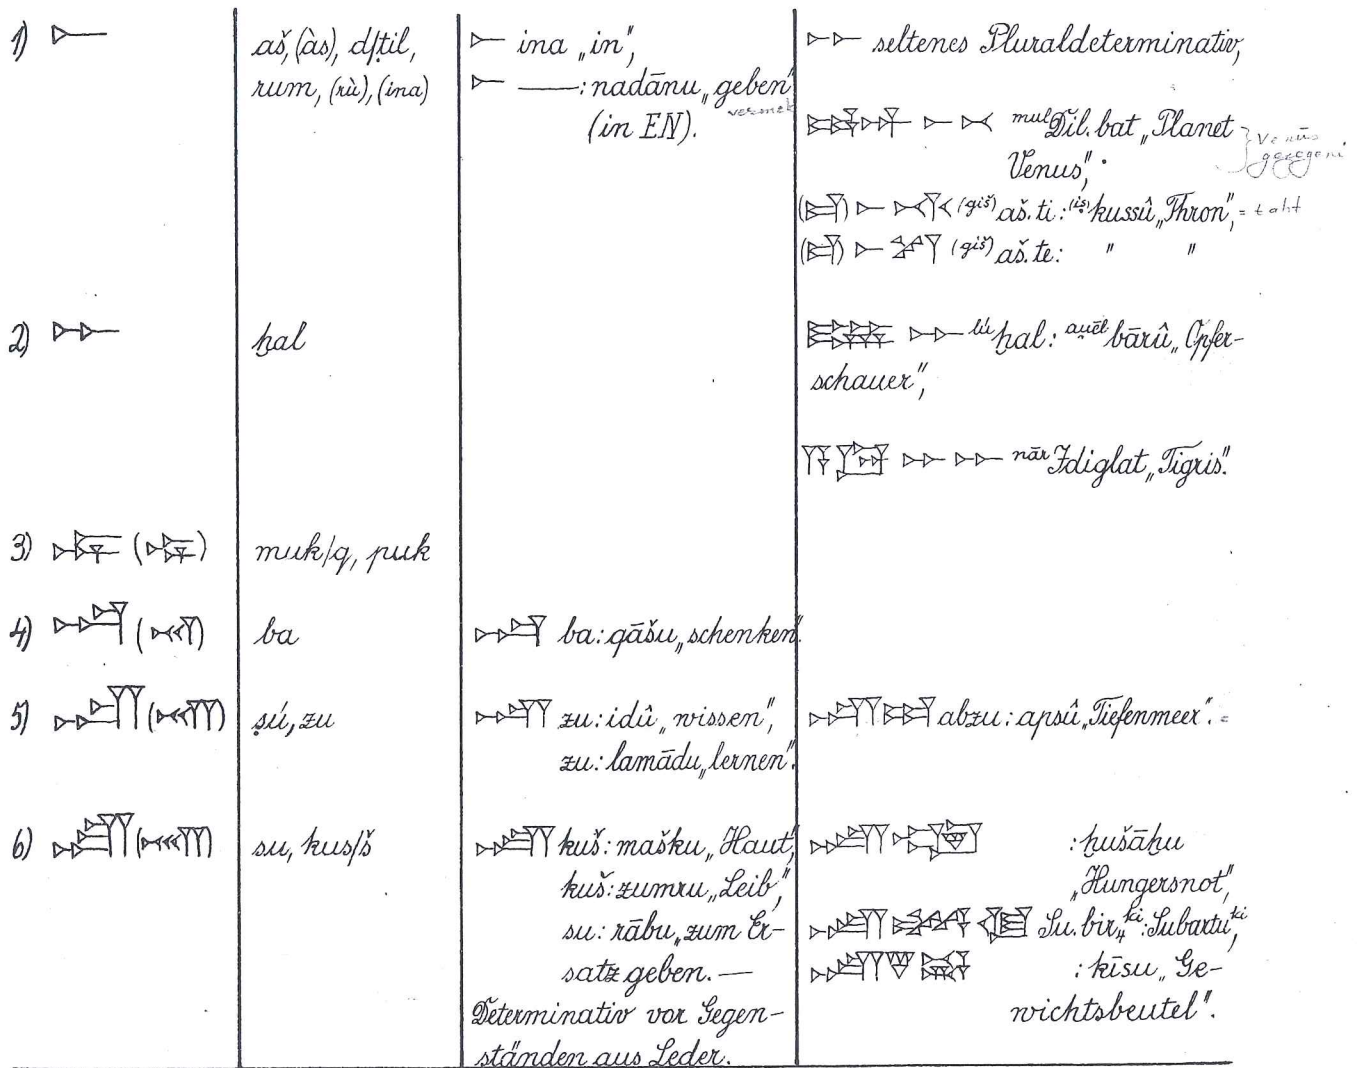 1) 𒀸
aš, (às), d/ṭil,
rum, (rù), (ina)
𒀸 ina „in",
𒀸 —: nadānu „geben"
vermek
(in EN).
𒀸𒀸 seltenes Pluraldeterminativ,
𒀯 𒀸 𒁁 mul Dil.bat „Planet
Venus",
Venüs
gezegeni
(𒄑) 𒀸 𒋾 (giš) aš.ti: (iṣ) kussû „Thron", = taht
(𒄑) 𒀸 𒋼 (giš) aš.te: " "
2) 𒄬
ḫal
𒇽 𒄬 lú ḫal: awēl bārû „Opfer-
schauer",
𒀀𒇉 𒄬 𒄬 nār Idiglat „Tigris".
3) 𒈮 (𒈮)
muk/q, puk
4) 𒁀 (𒁀)
ba
𒁀 ba: qāšu „schenken".
5) 𒍪 (𒍪)
ṣú, zu
𒍪 zu: idû „wissen",
zu: lamādu „lernen".
𒍪𒀊 abzu: apsû „Tiefenmeer". =
6) 𒋢 (𒋢)
su, kus/š
𒋢 kuš: mašku „Haut",
kuš: zumru „Leib",
su: râbu „zum Er-
satz geben. —
Determinativ vor Gegen-
ständen aus Leder.
𒋢𒅥 : ḫušāḫu
„Hungersnot",
𒋢 𒆠 Su.bir₄ ki: Subartu ki,
𒋢𒃻 : kīsu „Ge-
wichtsbeutel".